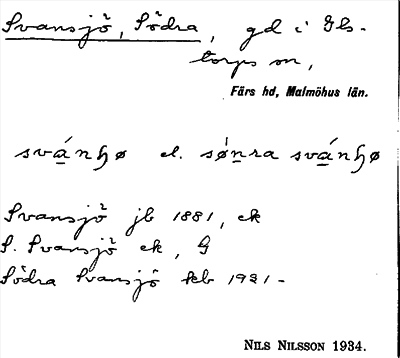 Svansjö, Södra, gd i Ils-
torps sn,
Färs hd, Malmöhus län.
svánhø el. sǿnra svánhø
Svansjö jb 1881, ek
S. Svansjö ek, G
Södra Svansjö kb 1921-
NILS NILSSON 1934.